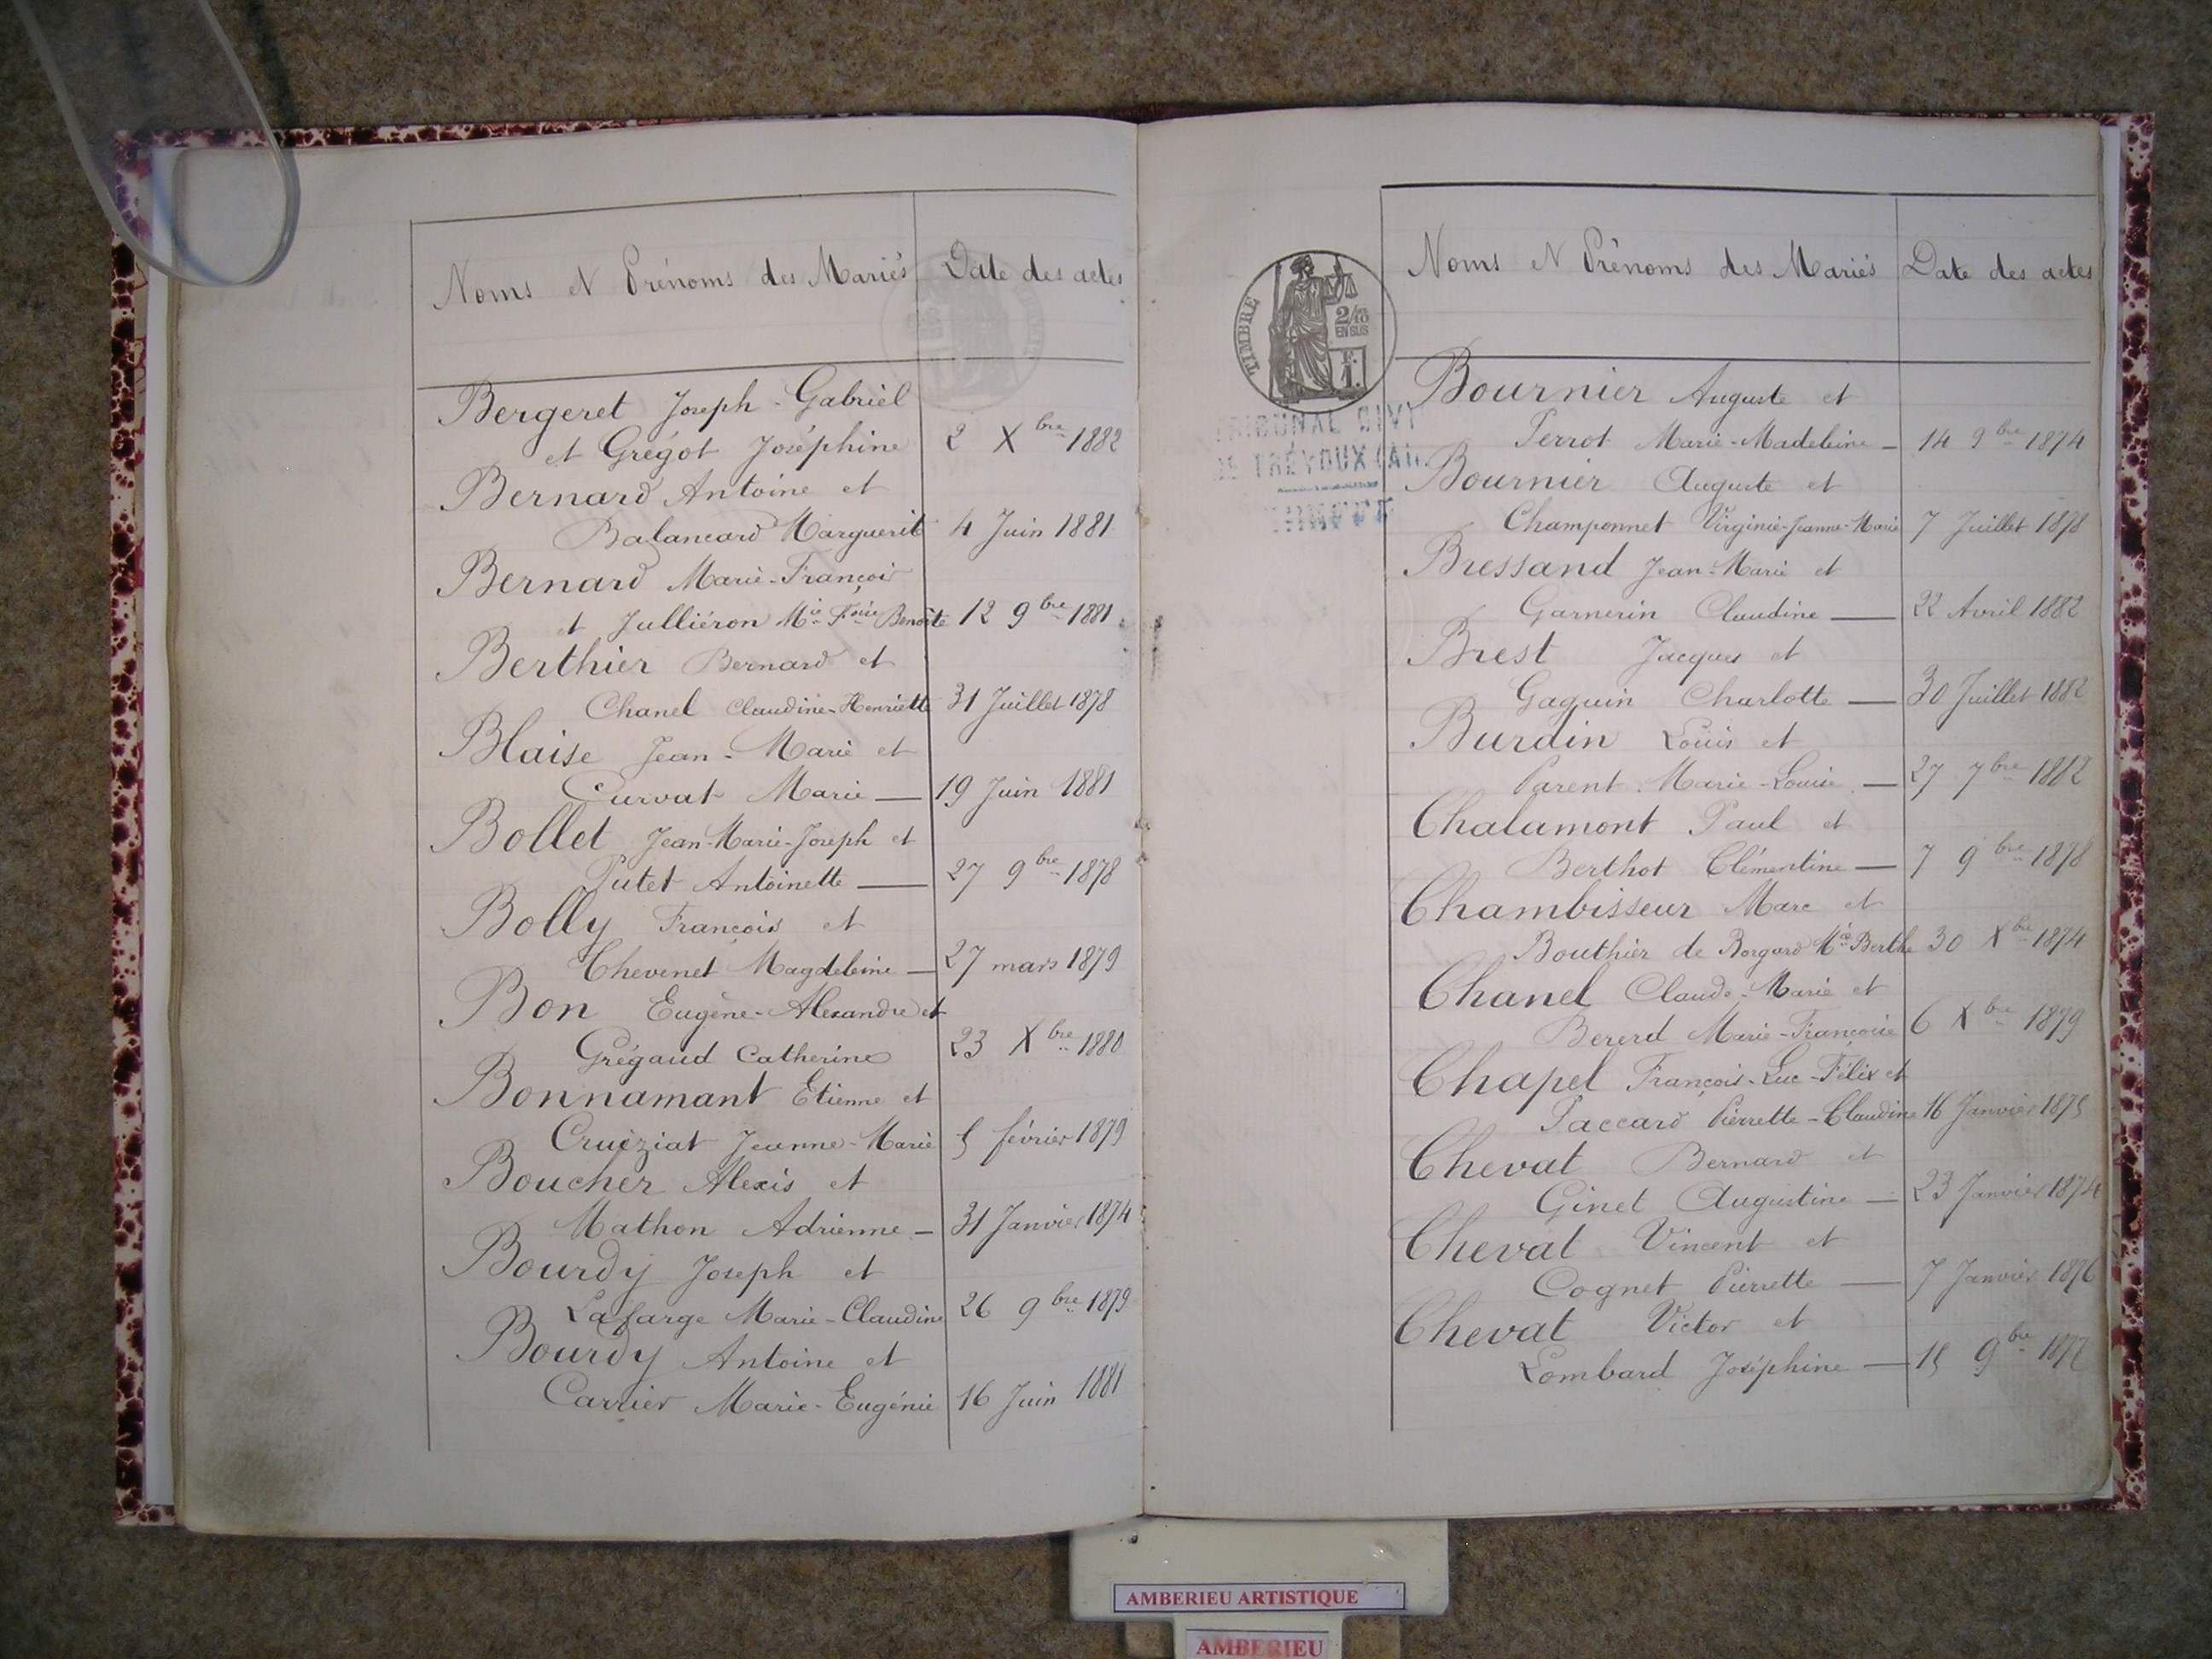 Noms et Prénoms des Mariés Date des actes
Bergeret Joseph-Gabriel
et Grégot Joséphine 2 Xbre 1882
Bernard Antoine et
Balancard Marguerite 4 Juin 1881
Bernard Marie-François
et Julliéron Mie Fçoise Benoîte 12 9bre 1881
Berthier Bernard et
Chanel Claudine-Henriette 31 Juillet 1878
Blaise Jean-Marie et
Curvat Marie — 19 Juin 1881
Bollet Jean-Marie-Joseph et
Putet Antoinette — 27 9bre 1878
Bolly François et
Thevenet Magdeleine — 27 mars 1879
Bon Eugène-Alexandre et
Grégaud Catherine 23 Xbre 1880
Bonnamant Etienne et
Cruéziat Jeanne-Marie 5 février 1879
Boucher Alexis et
Mathon Adrienne — 31 Janvier 1874
Bourdy Joseph et
Lafarge Marie-Claudine 26 9bre 1879
Bourdy Antoine et
Carrier Marie-Eugénie 16 Juin 1881
TIMBRE
2/10
EN SUS
F.
1.
TRIBUNAL CIVI
DE TRÉVOUX (AIN
Noms et Prénoms des Mariés Date des actes
Bournier Auguste et
Perrot Marie-Madeleine — 14 9bre 1874
Bournier Auguste et
Champonnet Virginie-Jeanne-Marie 7 Juillet 1878
Bressand Jean-Marie et
Garnerin Claudine — 22 Avril 1882
Brest Jacques et
Gaguin Charlotte — 30 Juillet 1882
Burdin Louis et
Parent Marie-Louise — 27 7bre 1882
Chalamont Paul et
Berthot Clémentine — 7 9bre 1878
Chambisseur Marc et
Bouthier de Borgard Mie Berthe 30 Xbre 1874
Chanel Claude-Marie et
Bererd Marie-Françoise 6 Xbre 1879
Chapel François-Luc-Félix et
Paccard Pierrette-Claudine 16 Janvier 1875
Chevat Bernard et
Ginet Augustine — 23 Janvier 1874
Chevat Vincent et
Cognet Pierrette — 7 Janvier 1876
Chevat Victor et
Lombard Joséphine — 15 9bre 1877
AMBERIEU ARTISTIQUE
AMBERIEU